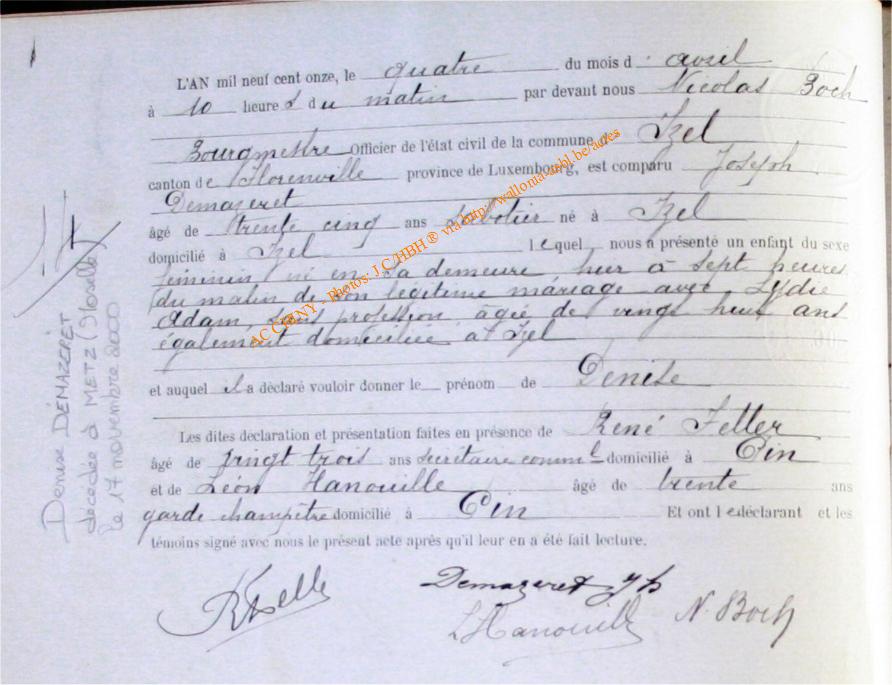 L'AN mil neuf cent onze, le quatre du mois d'avril
à 10 heures du matin par devant nous Nicolas Boch
Bourgmestre Officier de l'état civil de la commune d' Izel
canton de Florenville province de Luxembourg, est comparu Joseph
Demazeret
âgé de trente cinq ans sabotier né à Izel
domicilié à Izel lequel nous a présenté un enfant du sexe
féminin né en sa demeure, hier à sept heures
du matin de son légitime mariage avec Lydie
Adam, sans profession âgée de vingt huit ans
également domiciliée à Izel
et auquel il a déclaré vouloir donner le prénom de Denise
Les dites déclaration et présentation faites en présence de René Feller
âgé de vingt trois ans secrétaire comml domicilié à Pin
et de Léon Hanouille âgé de trente ans
garde champêtre domicilié à Pin Et ont le déclarant et les
témoins signé avec nous le présent acte après qu'il leur en a été fait lecture.
Demazeret Jh
L Hanouille
N. Boch
Denise DÉMAZERET
décédée à METZ (Moselle)
le 17 novembre 2000
AC CHINY - Photos: J C HBH ® via http://wallonia.asbl.be/actes